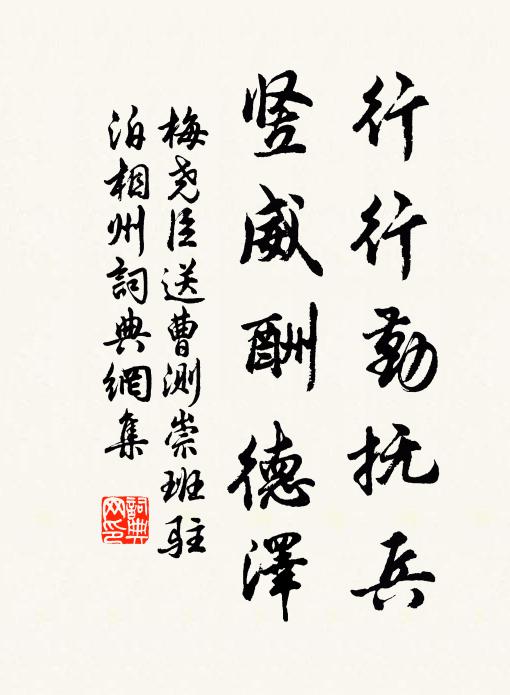 行行勤抚兵
竖威酬德澤
梅尧臣送曹測崇班駐
泊相州詞典網集
詞典
网印